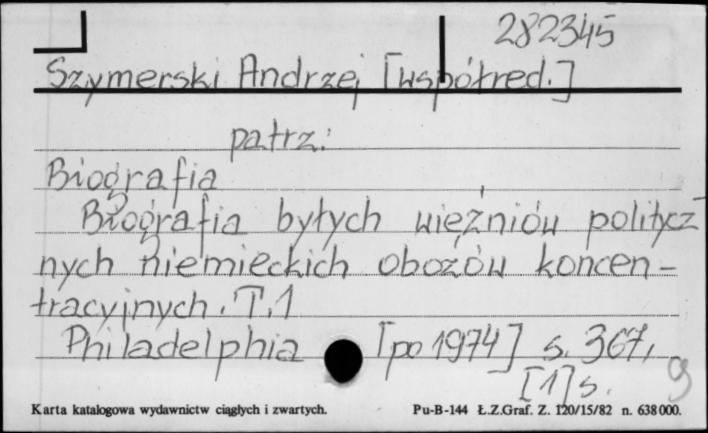 282345
Szymerski Andrzej [współred.]
patrz:
Biografia
Biografia byłych więźniów politycz-
nych niemieckich obozów koncen-
tracyjnych. T.1
Philadelphia [po 1974] s. 367,
[1] s. 9
Karta katalogowa wydawnictw ciągłych i zwartych. Pu-B-144 Ł.Z.Graf. Z. 120/15/82 n. 638000.